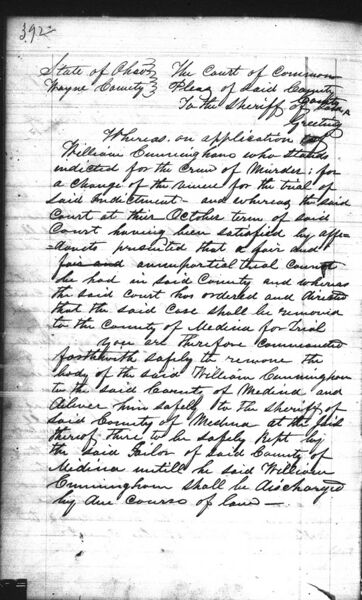 392
State of Ohio } The Court of Common
Wayne County } Pleas of said County
To the Sheriff of said
County
Greeting
Whereas on application of
William Cunningham who stands
indicted for the Crime of Murder; for
a change of the venue for the trial of
said indictment - and whereas the said
Court at their October term of said
Court having been satisfied by affi-
=davits presented that a fair and
fair and unimpartial trial cannot
be had in said County and whereas
the said Court has ordered and directed
that the said Case shall be removed
to the County of Medina for trial
You are therefore commanded
forthwith safely to remove the
body of the said William Cunningham
to the said County of Medina and
deliver him safely to the sheriff of
said County of Medina at the Jail
thereof there to be safely kept by
the said Jailor of said County of
Medina untill he said William
Cunningham shall be discharged
by due course of law —